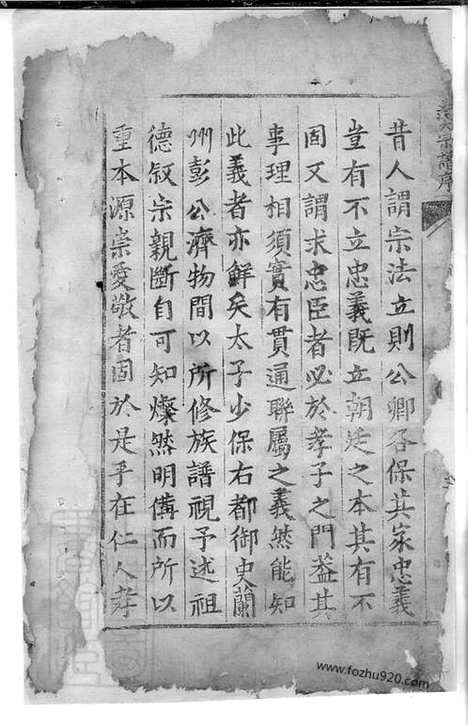 昔人謂宗法立則公卿各保其家忠義
豈有不立忠義既立朝廷之本其有不
固又謂求忠臣者必於孝子之門葢其
事理相須實有貫通聯屬之義然能知
此義者亦鮮矣太子少保右都御史蘭
州彭公濟物間以所修族譜視予述祖
德叙宗親斷自可知燦然明備而所以
重本源崇愛敬者固於是乎在仁人孝
www.fozhu920.com